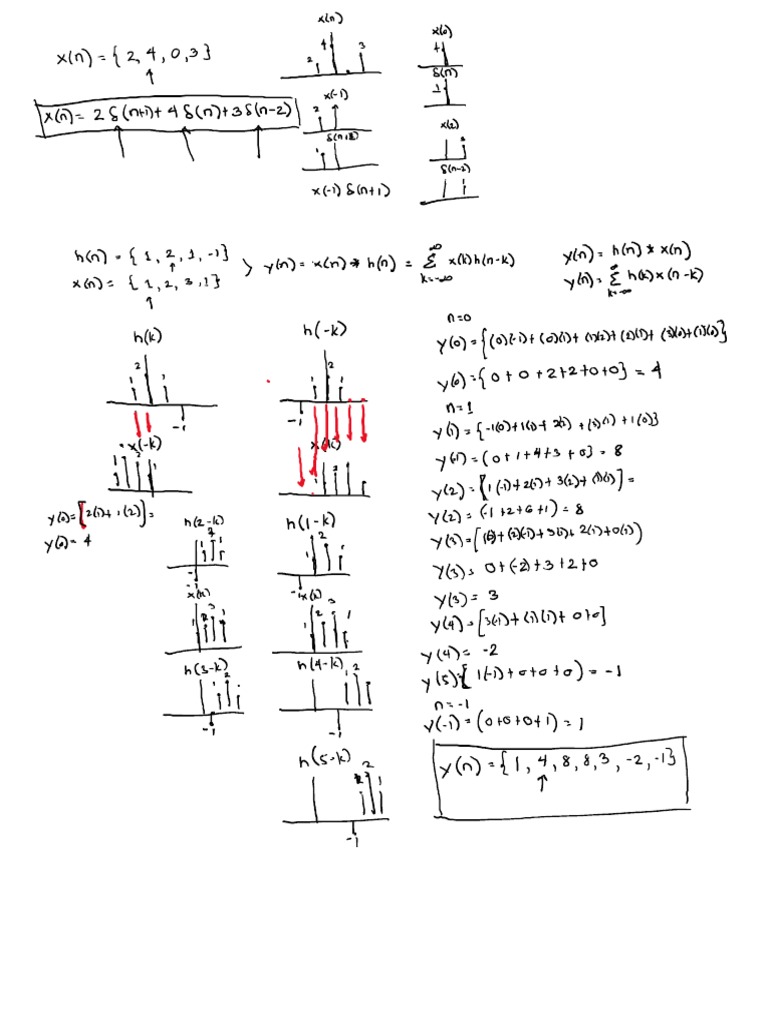 x(n) = { 2, 4, 0, 3 }
↑
x(n) = 2 δ(n+1) + 4 δ(n) + 3 δ(n-2)
x(n)
2 4 3
x(-1)
2
1
x(-1) δ(n+1)
x(0)
4
δ(n)
1
x(2)
3
δ(n-2)
1
h(n) = { 1, 2, 1, -1 }
↑
x(n) = { 1, 2, 3, 1 }
↑
y(n) = x(n) * h(n) = Σ x(k) h(n-k)
k=-∞ ∞
y(n) = h(n) * x(n)
y(n) = Σ h(k) x(n-k)
k=-∞ ∞
h(k)
1 2 1
-1
x(-k)
1 3 1
y(0) = [2(1) + 1(2)] =
y(0) = 4
h(-k)
1 2 1
-1
x(k)
h(2-k)
1 2 1
-1
x(k)
1 2 3 1
h(3-k)
1 2
-1
h(1-k)
1 2 1
-1
x(k)
1 2 3 1
h(4-k)
1 2
-1
h(5-k)
2 1
-1
n=0
y(0) = {(0)(-1) + (0)(1) + (1)(2) + (2)(1) + (3)(0) + (1)(0)}
y(0) = {0 + 0 + 2 + 2 + 0 + 0} = 4
n=1
y(1) = {-1(0) + 1(1) + 2(2) + (3)(1) + 1(0)}
y(1) = (0 + 1 + 4 + 3 + 0) = 8
y(2) = [1(-1) + 2(1) + 3(2) + (1)(1)] =
y(2) = (-1 + 2 + 6 + 1) = 8
y(3) = [ + (2)(-1) + 3(1) + 2(1) + 0(1))
y(3) = 0 + (-2) + 3 + 2 + 0
y(3) = 3
y(4) = [3(-1) + (1)(1) + 0 + 0]
y(4) = -2
y(5) = [1(-1) + 0 + 0 + 0) = -1
n=-1
y(-1) = (0 + 0 + 0 + 1) = 1
y(n) = { 1, 4, 8, 8, 3, -2, -1 }
↑